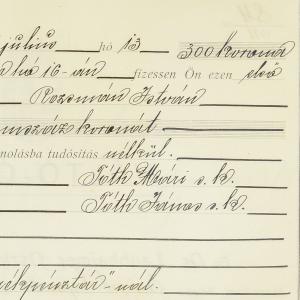 julius hó 13 300 korona
hó 16-án fizessen Ön ezen első
Rozsmán István
száz koronát
nolásba tudósítás nélkül.
Tóth Mári s.k.
Tóth János s.k.
pénztár"-nál.